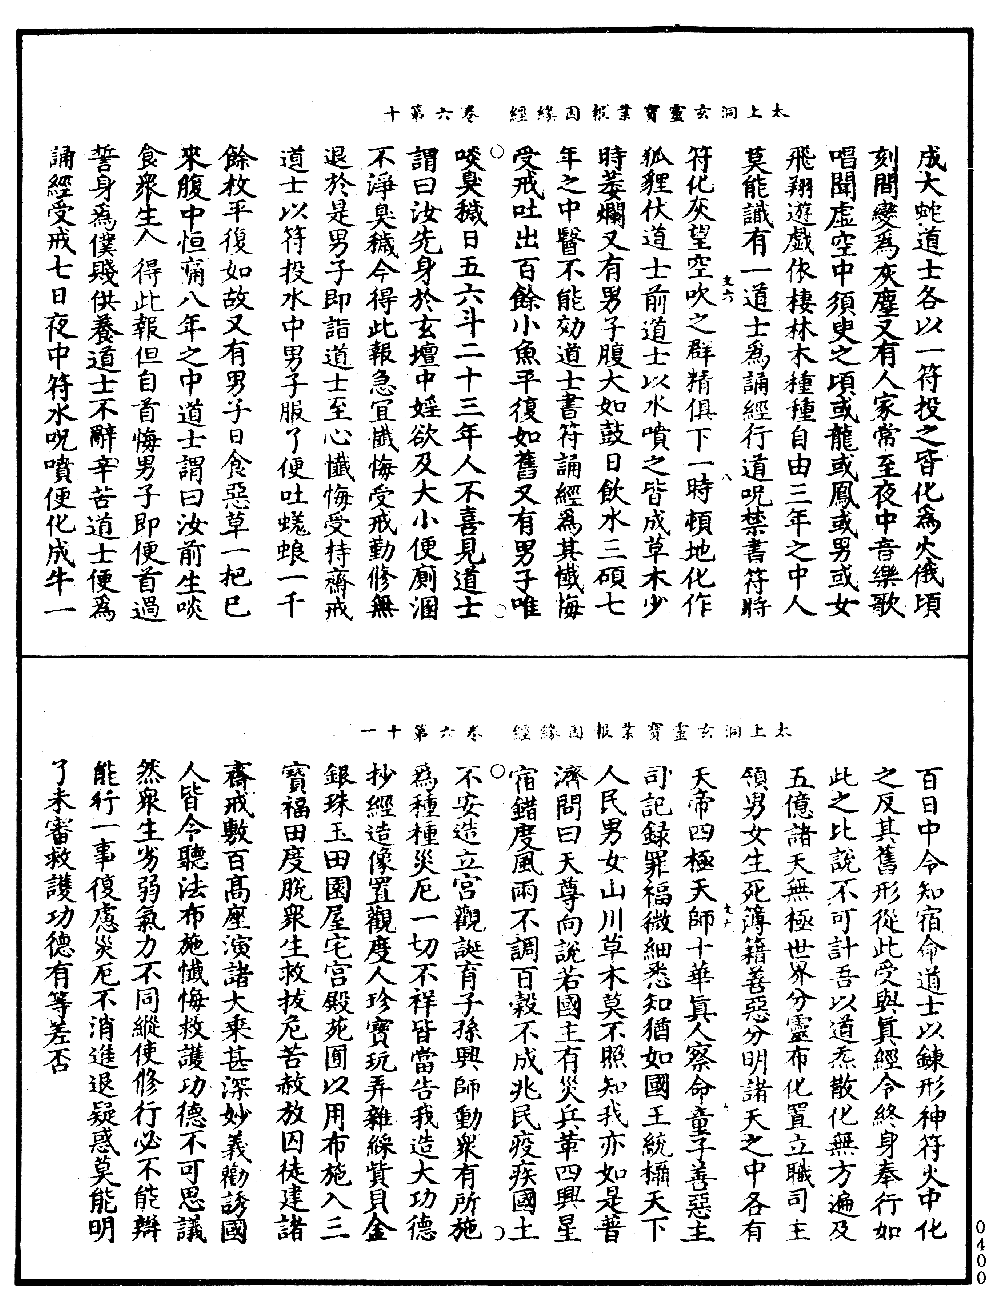 太上洞玄靈寶業報因緣經　卷六第十
成大蛇道士各以一符投之皆化為火俄頃
刻間變為灰塵又有人家常至夜中音樂歌
唱聞虛空中須臾之頃或龍或鳳或男或女
飛翔遊戲依棲林木種種自由三年之中人
莫能識有一道士為誦經行道呪禁書符時
符化灰望空吹之群精俱下一時頓地化作
狐狸伏道士前道士以水噴之皆成草木少
時萎爛又有男子腹大如鼓日飲水三碩七
年之中醫不能効道士書符誦經為其懺悔
受戒吐出百餘小魚平復如舊又有男子唯
啖臭穢日五六斗二十三年人不喜見道士
謂曰汝先身於玄壇中婬欲及大小便廁溷
不淨臭穢今得此報急宜懺悔受戒勤修無
退於是男子即詣道士至心懺悔受持齋戒
道士以符投水中男子服了便吐蜣蜋一千
餘枚平復如故又有男子日食惡草一把已
來腹中恒痛八年之中道士謂曰汝前生啖
食眾生人得此報但自首悔男子即便首過
誓身為僕賤供養道士不辭辛苦道士便為
誦經受戒七日夜中符水呪噴便化成牛一
太上洞玄靈寶業報因緣經　卷六第十一
百日中令知宿命道士以鍊形神符火中化
之反其舊形從此受與真經令終身奉行如
此之比說不可計吾以道炁散化無方遍及
五億諸天無極世界分靈布化置立職司主
領男女生死薄籍善惡分明諸天之中各有
天帝四極天師十華真人察命童子善惡主
司記録罪福微細悉知猶如國王統攝天下
人民男女山川草木莫不照知我亦如是普
濟問曰天尊向說若國主有災兵革四興星
宿錯度風雨不調百穀不成兆民疫疾國土
不安造立宮觀誕育子孫興師動眾有所施
為種種災厄一切不祥皆當告我造大功德
抄經造像置觀度人珍寶玩弄雜綵貲貝金
銀珠玉田園屋宅宮殿苑囿以用布施入三
寶福田度脫眾生救拔危苦赦放囚徒建諸
齋戒敷百高座演諸大乘甚深妙義勸誘國
人皆令聽法布施懺悔救護功德不可思議
然眾生劣弱氣力不同縱使修行必不能辦
能行一事復慮災厄不消進退疑惑莫能明
了未審救護功德有等差否
0400